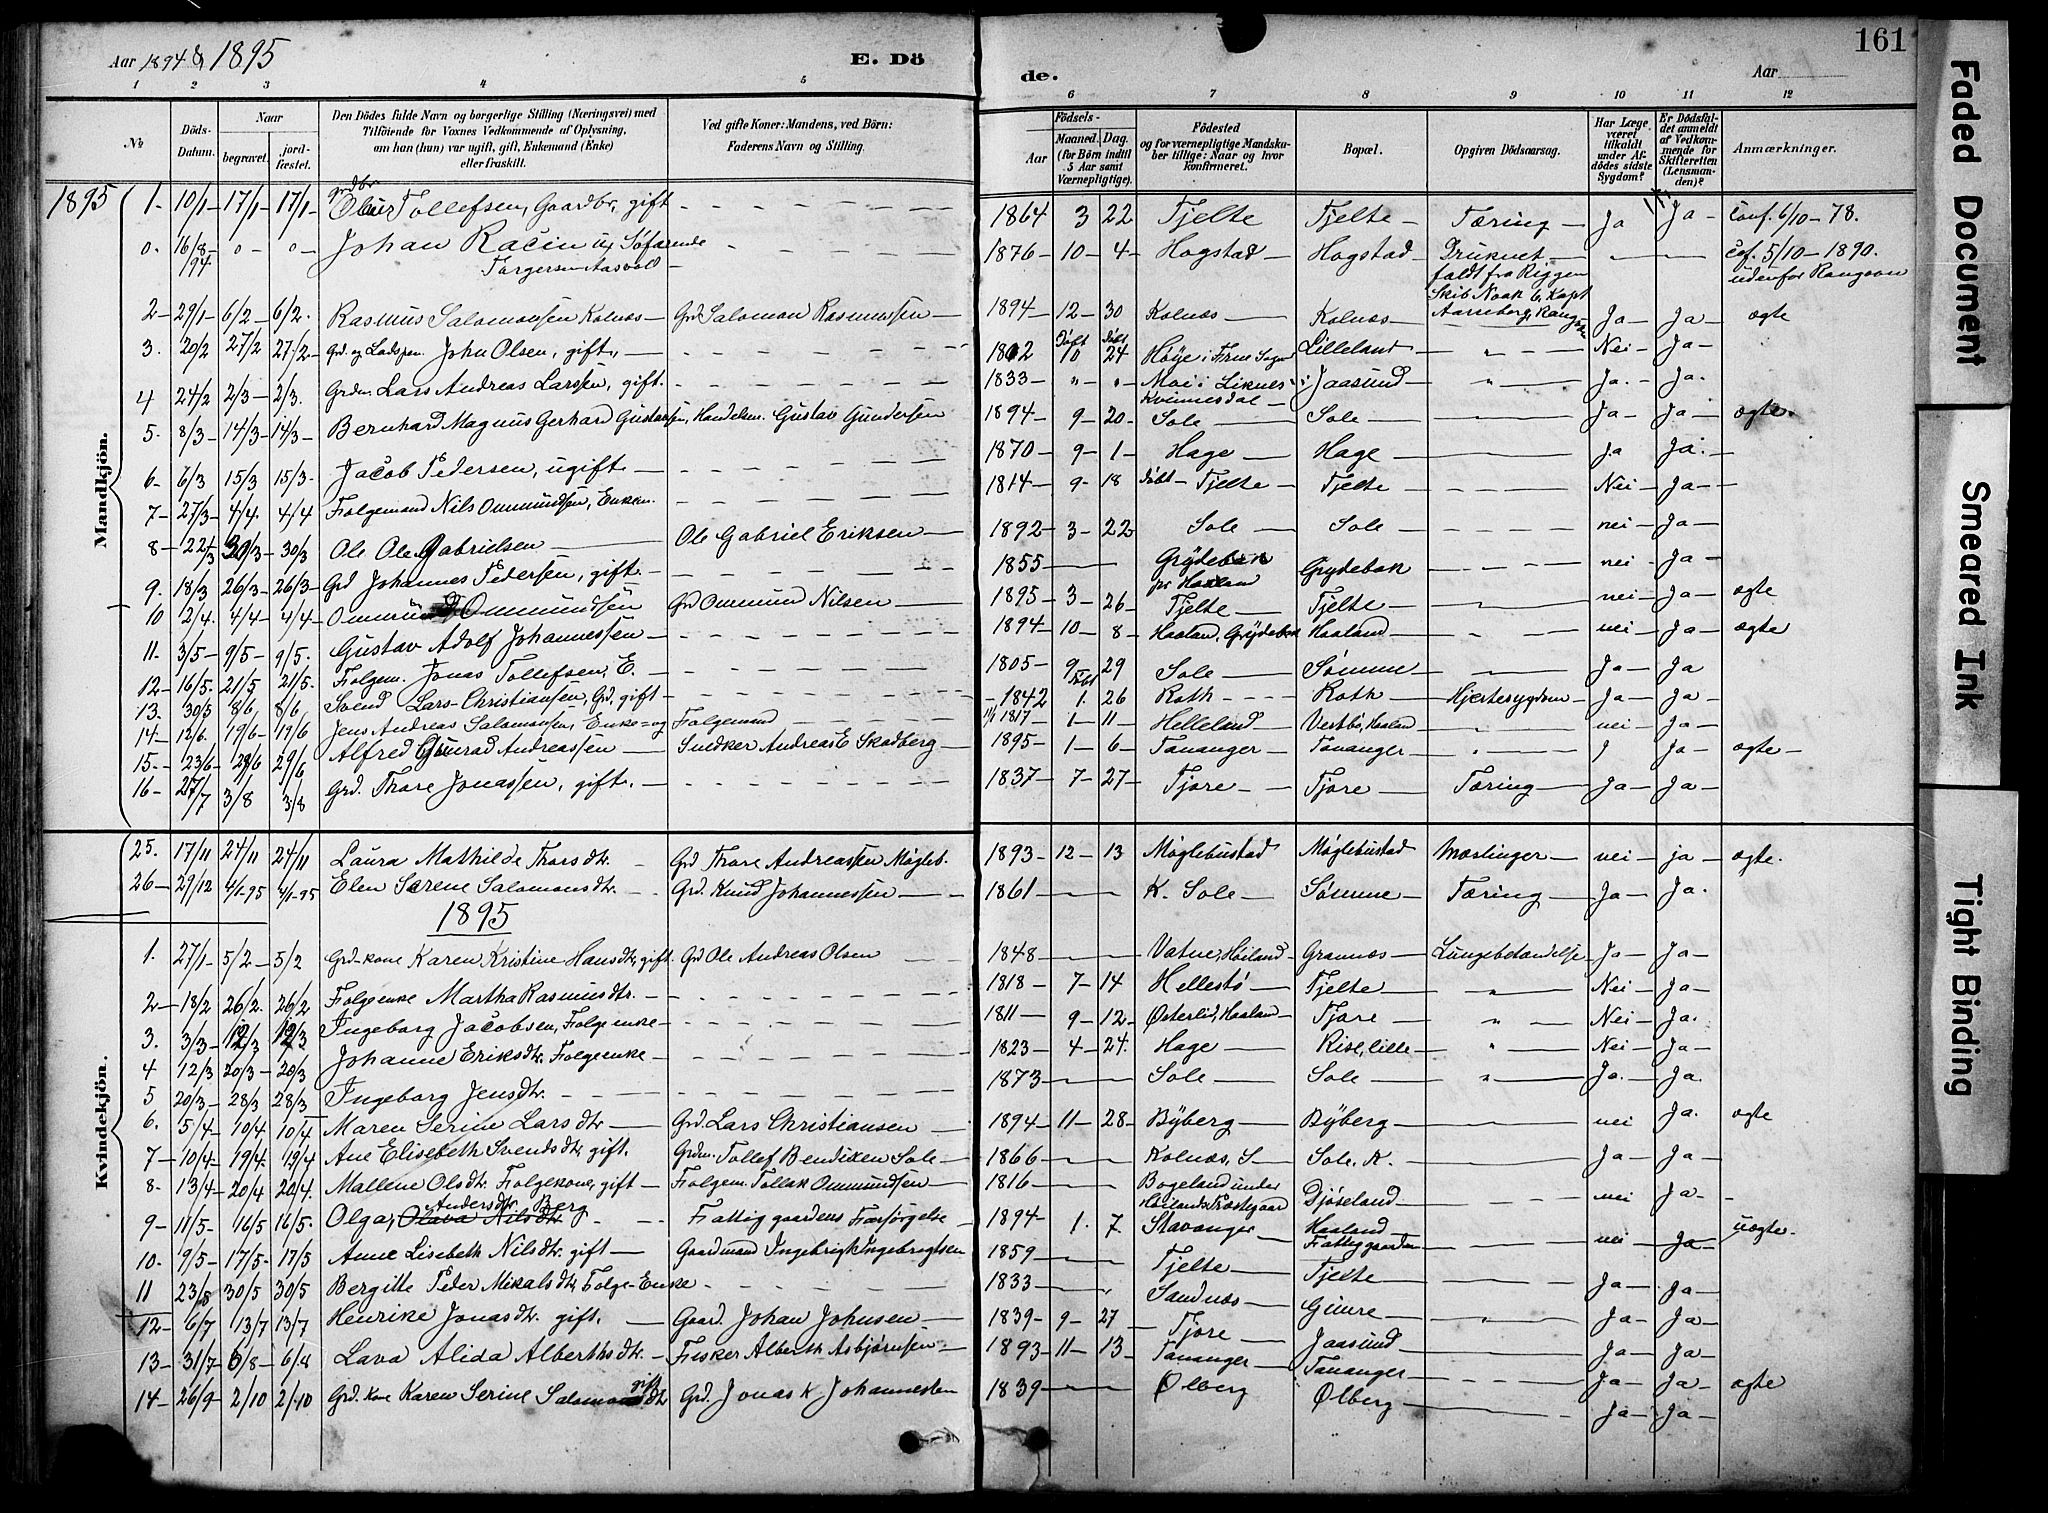 Aar 1894 & 1895
E. Dö
de.
Aar
161
1 2 3 4 5 6 7 8 9 10 11 12
№
Döds-Datum.
Naar
begravet.
jord-fæstet.
Den Dödes fulde Navn og borgerlige Stilling (Næringsvei) med
Tilföiende for Voxnes Vedkommende af Oplysning,
om han (hun) var ugift, gift, Enkemand (Enke)
eller fraskilt.
Ved gifte Koner: Mandens, ved Börn:
Faderens Navn og Stilling.
Födsels-
Aar
Maaned. Dag.
(for Börn indtil
5 Aar samt
Værnepligtige).
Födested
og for værnepligtige Mandska-
ber tillige: Naar og hvor
konfirmeret.
Bopæl.
Opgiven Dödsaarsag.
Har Læge
været
tilkaldt
under Af-
dödes sidste
Sygdom?
Er Dödsfal-
det anmeldt
af Vedkom-
mende for
Skifteretten
(Lensman-
den)?
Anmærkninger.
Mandkjön.
1895 1 – 10/1 – 17/1 – 17/1 – Tollefsen, Gaardbr, gift – 1864 3 22 Tjelte – Tjelte – Tæring – Ja Ja – Conf. 6/10 – 78.
0. 16/8 94 – 0 – 0 – Johan Racin ug Søfarende – 1876 – 10 – 4 – Hogstad – Hogstad – Druknet – Cof. 5/10 – 1890.
Torgersen Aasvoll – faldt fra Riggen udenfor Rangoon
Skib Noak 6, Kapt
2 – 29/1 – 6/2 – 6/2. Rasmus Salomonsen Kolnæs – Grd Salomon Rasmussen – 1894 – 12 – 30 Kolnæs – Kolnæs – Ja – Ja – ægte
3. 20/2 27/2 27/2 – Grd. og Ladspen. John Olsen, gift, – Døbt 10 Døbt 24 Høye i Lilleland – " – Nei – Ja –
4 24/2 2/3 – 2/3. Grdm. Lars Andreas Larssen, gift. – 1833 – " – " – Moi i Liknes i Jaasund – " – Ja. – Ja.
Kvinnesdal –
5. 8/3 – 14/3 – 14/3 – Bernhard Magnus Gerhard Gustavsen, Handelsm. Gustav Gundersen 1894 – 9 – 20 – Sole – Sole – Ja – Ja – ægte.
6 – 6/3 15/3 15/3 – Jacob Pedersen, ugift. – 1870 – 9 – 1 – Hage – Hage – Ja Ja. –
7 – 27/3 – 4/4. 4/4 Folgemand Nils Ommundsen, Enkem. 1814 – 9 – 18 Døbt – Tjelte – Tjelte – Nei – Ja –
8 – 22/3 30/3 – 30/3 Ole Ole Gabrielsen – Ole Gabriel Eriksen – 1892 – 3 – 22 – Sole – Sole – nei – Ja –
9. 18/3 26/3 – 26/3 – Grd Johannes Pedersen, gift. – 1855 – Grydebak Grydebak – nei – Ja –
pr Haaland
10 2/4. 4/4 – 4/4 – Ommund Ommundsen Grd Ommund Nilsen – 1895 – 3 – 26 – Tjelte – Tjelte – nei – Ja – ægte
11. 3/5 – 9/5 – 9/5. Gustav Adolf Johannessen – 1894 – 10 – 8 – Haaland, Grydebak Haaland – " – nei – Ja – ægte
12 – 16/5. 21/5 21/5. Folgem. Jonas Tollefsen, E. – 1805 – 9 29 Sole – Sømme – Ja – Ja
13. 30/5 8/6 8/6 Svend Lars Christiansen, Grd, gift – 1842 1. 26 Roth – Roth – Hjertesygdom – Ja – Ja –
14 – 12/6. 19/6 – 19/6 Jens Andreas Salomonsen, Enke – og Folgemand – 1817 – 1 – 11 – Helleland – Vestbø, Haaland – " – nei – Ja –
15 – 23/6 – 29/6 29/6 Alfred Andreassen – Snedker Andreas E Skadberg – 1895 – 1 – 6 – Tananger – Tananger – " – J Ja – ægte –
16 – 27/7 3/8 3/8 Grd. Thore Jonassen, gift. – 1837 – 7 – 27 – Tjore – Tjore – Tæring – Ja – Ja –
25. 17/11 24/11 24/11 Laura Mathilde Thorsdtr. – Grd Thore Andreassen Mögleb. 1893 – 12 – 13 Møglebustad Møglebustad Mæslinger – nei – ja – ægte.
26 – 29/12 4/1-95 4/1-95 Elen Serene Salomonsdtr. – Grd. Knud Johannessen – 1861 – K. Sole – Sømme – Tæring – Ja – Ja.
1895
Kvindekjön.
1. 27/1 – 5/2 – 5/2 Grd-kone Karen Kristine Hansdtr, gift Grd Ole Andreas Olsen 1848 – Vatne, Høiland – Grannæs – Lungebetændelse Ja – Ja –
2 – 18/2 26/2. 26/2 Folgeenke Martha Rasmusdtr. – 1818 – 7 – 14 Hellestø – Tjelte – " – Nei – Ja –
3. 3/3 – 12/3 12/3 Ingeborg Jacobsen, Folgeenke – 1811 – 9 – 12 – Østerlid, Haaland – Tjore – " – Nei – Ja.
4 12/3 20/3 – 20/3 Johanne Eriksdtr. Folgeenke – 1823 – 4 – 24. Hage – Rise, lille – " – Nei – Ja –
5 20/3 – 28/3 28/3 – Ingeborg Jensdtr. – 1873 – Sole – Sole – " – Ja. – Ja.
6. 5/4 – 10/4 10/4 Maren Serine Larsdtr – Grd. Lars Christiansen – 1894 – 11 – 28 – Byberg – Byberg – nei Ja. ægte
7 – 10/4 – 19/4. 19/4 Ane Elisebeth Svendsdtr, gift. Grdm. Tollef Bendixen Sole – 1866 – Kolnæs, S – Sole, K. – Ja – Ja –
8. 13/4 – 20/4 20/4. Mallene Olsdtr. Folgekone, gift – Folgem. Tollak Ommundsen – 1816 – Bogeland under Djøseland – nei Ja –
Andersdtr. Berg
9 – 11/5 – 16/5 16/5. Olga, Olava Nilsdtr – Fattiggaardens Forsørgelse – 1894 – 1. 7. Stavanger – Haaland Fattiggaarden – nei – Ja – uægte.
10. 9/5 – 17/5. 17/5 Anne Lisebeth Nilsdtr. gift – Gaardmand Ingebrigt Ingebregtsen 1859 – Tjelte – Tjelte
11 23/5 30/5 30/5 Bergitte Peder Mikalsdtr, Folge-Enke – 1833 – Sandnæs – Gimre – Ja – Ja –
12 – 6/7 13/7 13/7 Henrike Jonasdtr. gift. – Gaard. Johan Johnsen – 1839 – 9 – 27 – Tjore – Jaasund – " – Ja – Ja –
13 – 31/7 6/8 – 6/8 Lava Alida Alberthsdtr. – Fisker Alberth Asbjørnsen – 1893 – 11 – 13 – Tananger – Tananger – Ja – Ja –
14 – 26/9 – 2/10 2/10 Grd. kone Karen Serine Salomonsdtr gift Grd. Jonas K Johannessen 1839 – Ølberg Ølberg – Ja – Ja – ægte
Faded Document
Smeared Ink
Tight Binding